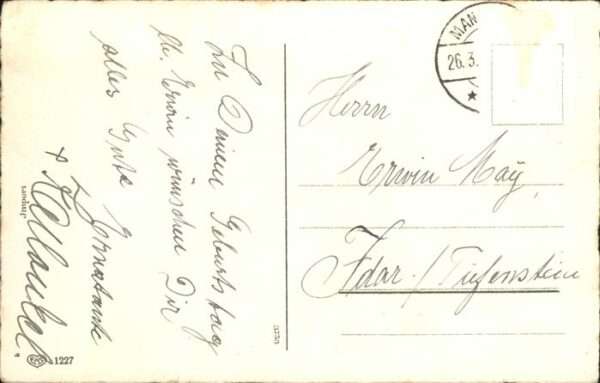 Zu Deinem Geburtstag
lb. Erwin wünschen Dir
alles Gute
+
Herrn
Erwin May,
Idar-/Tiefenstein
MAN
26.3.
1227